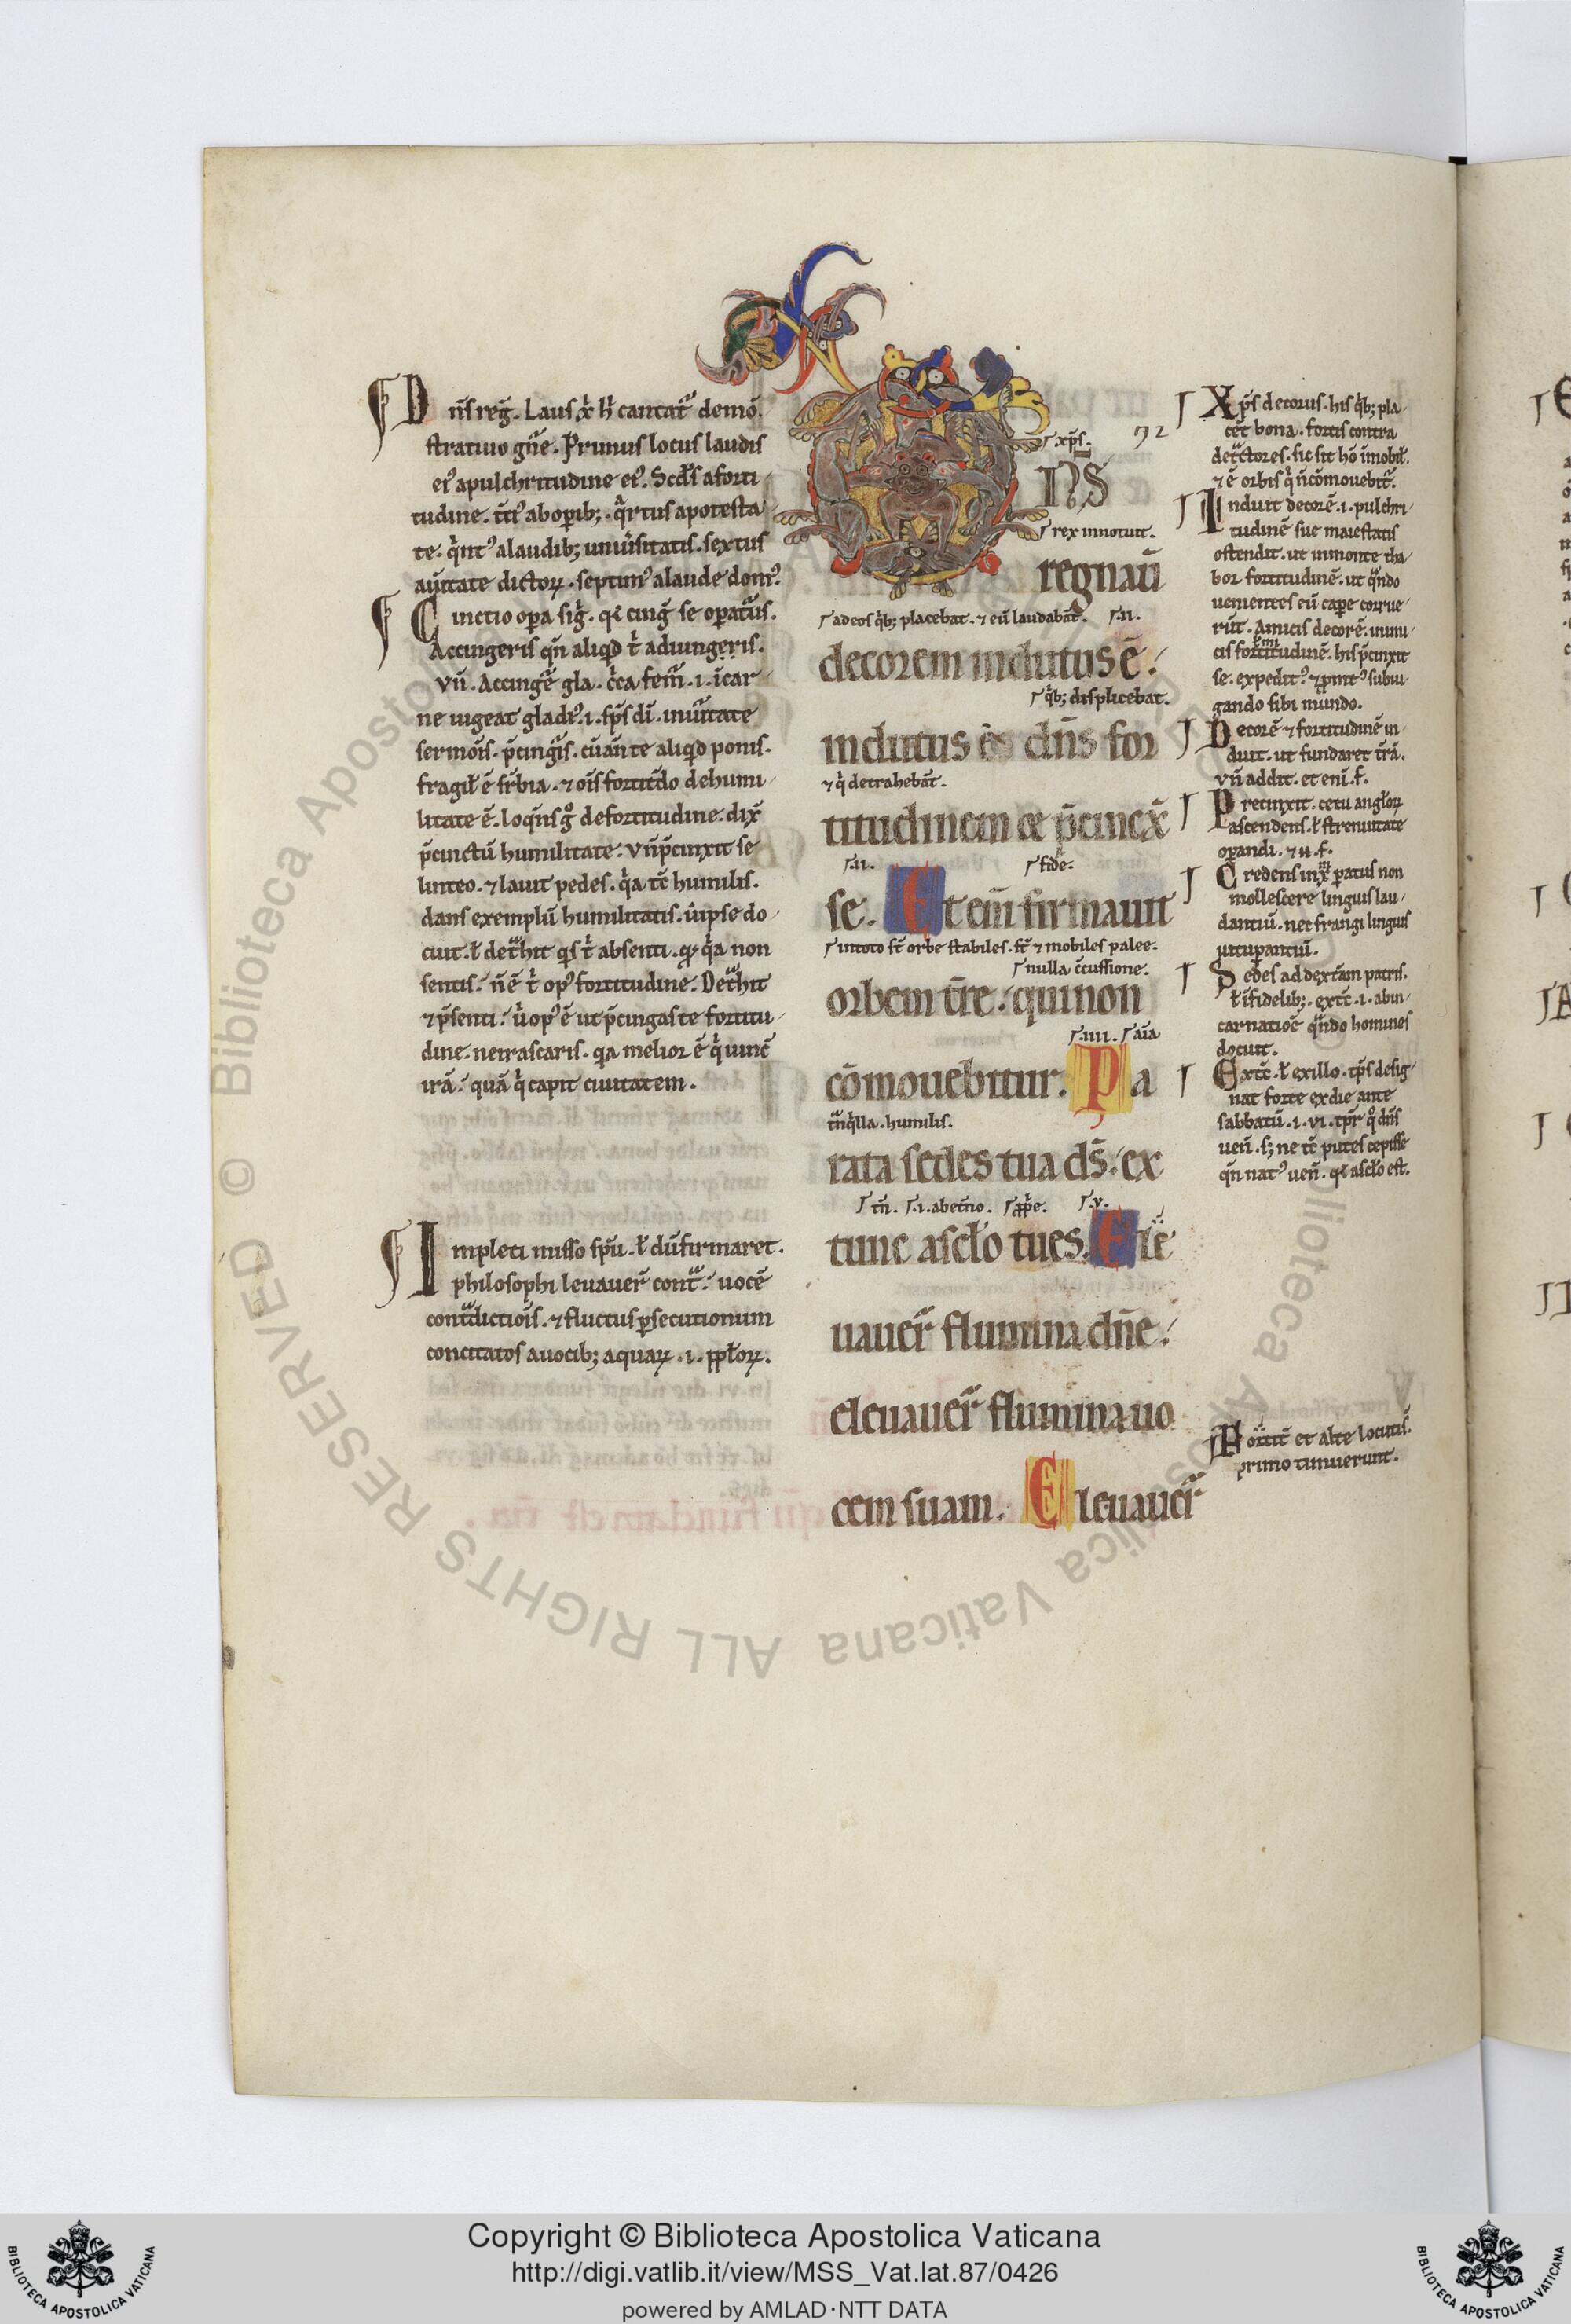 D n̄s reḡ. Laus x̄ h̄ cantat᷑ demō
stratiuo gn̄e. Primus locus laudis
eiꝰ a pulchritudine eiꝰ. Scd̄s a forti
tudine. t̄ciꝰ ab oꝑib;. qͥrtus a potesta
te. qͥntꝰ a laudib; uniūsitatis. sextus
dictoꝝ. septimꝰ a laude domꝰ
C inctio oꝑa siḡ. ꝗ cinḡ se oꝑat᷑is.
Accingeris qn̄ aliqͥd t̄ adiungeris.
vn̄. Accinge gla. femͬ. i. icar
ne iugeat gladiꝰ. i. sp̄s dī. in
sermōis. p̄cing̓is. cū ante aliqͥd ponis.
fragil̓ ē sr̄bia. ⁊ oīs fortitūdo de humi
litate ē. loq̄ns gͦ de fortitudine. dix̄
p̄cinctū humilitate. vn̄ p̄cinxit se
linteo. ⁊ lauit pedes. qͥa tc̄ humilis.
dans exemplū humilitatis. ipse do
cuit. ł det̓hit qͥs t̄ absenti. qͥa non
sentis. n̄ ē t̄ opꝰ fortitudine. Det̓hit
⁊ p̄senti. opꝰ ē ut p̄cingas te fortitu
dine. ne irascaris. qͥa melior ē qͥ uinc̄
irā. quā qͥ capit ciuitatem.
I mpleti misso sp̄u. ł dū firmaret.
philosophi leuauer̄ cont᷑. uocē
cont᷑dictiōis. ⁊ fluctus ꝑsecutionum
concitatos a uocib; aquaꝝ. i. ꝓpl̄oꝝ.
xp̄s. 92
N̄S
rex innotuit.
regnau̅
ad eos qͥb; placebat. ⁊ eū laudabāt. ii.
decorem indutus ē.
qͥb; displicebat.
indutus ē dn̄s for
⁊ qͥ detrahebāt.
titudinem ⁊ p̄cinx̄
ii. fide.
se. Et em̄ firmauit
in toto st̄ orbe stabiles. st̄ ⁊ mobiles palee.
nulla c̄cussione.
orbem tr̄e. qui non
iiii. aīa
cōmouebitur. Pa
t̄nqͥlla. humilis.
rata sedes tua ds̄. ex
tn̄. i. ab et̄no. v.
tunc a sc̄lo tu es. Ele
uauer̄ flumina dn̄e.
eleuauer̄ flumina uo
cem suam. Eleuauer̄
X p̄s decorus. his qͥb; pla
cet bona. fortis contra
det̄ctores. sic sit hō īmobil̓.
⁊ ē orbis qͥ n̄ cōmouebit᷑.
I nduit decorē. i. pulchri
tudinē sue maiestatis
ostendit. ut in monte tha
bor fortitudinē. ut qn̄do
uenientes eū capere corrue
rūt. Amicis decorē. inimi
cis fortitudinē. his p̄cinxit
se. expeditꝰ. ⁊ subiu
gando sibi mundo.
D ecorē ⁊ fortitudinē in
duit. ut fundaret tr̄ā.
vn̄ addit. et enī. f.
P recinxit. cetu angl̓oꝝ
ascendens. ł strenuitate
oꝑandi. ⁊ ii. f.
C redens in x̄ paratus non
mollescere linguis lau
dantiū. nec frangi linguis
uituꝑantiū.
S edes ad dext̄am patris.
ł īfidelib;. ext̄c. i. ab in
carnatiōe qn̄do homines
docuit.
E xtc̄. ł ex illo. tp̄s desig
nat forte ex die ante
sabbatū. i. vi. qͦ dn̄s
uen̄. s; ne tc̄ putes cepisse
qn̄ natꝰ uen̄. a sc̄lo est.
F ortit̓ et alte locutis.
primo timuerunt.
Copyright © Biblioteca Apostolica Vaticana
http://digi.vatlib.it/view/MSS_Vat.lat.87/0426
powered by AMLAD·NTT DATA
BIBLIOTECA APOSTOLICA VATICANA
BIBLIOTECA APOSTOLICA VATICANA
© Biblioteca Apostolica Vaticana ALL RIGHTS RESERVED